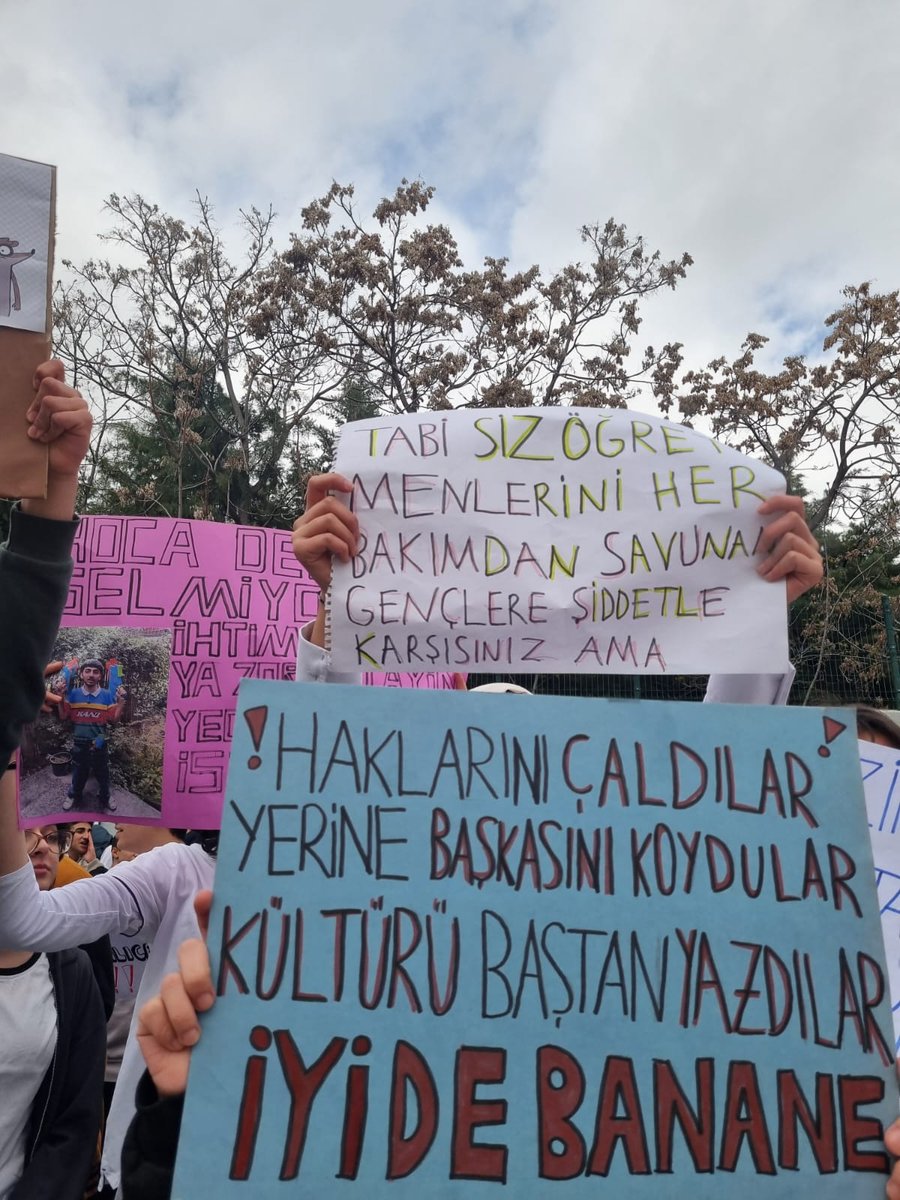 TABİ SİZ ÖĞRET
MENLERİNİ HER
BAKIMDAN SAVUNAN
GENÇLERE ŞİDDETLE
KARŞISINIZ AMA
HOCA DE
GELMİYO
İHTİM
YA ZOR
YED
İS
KANZ
! HAKLARINI ÇALDILAR !
YERİNE BAŞKASINI KOYDULAR
KÜLTÜRÜ BAŞTAN YAZDILAR
İYİDE BANANE